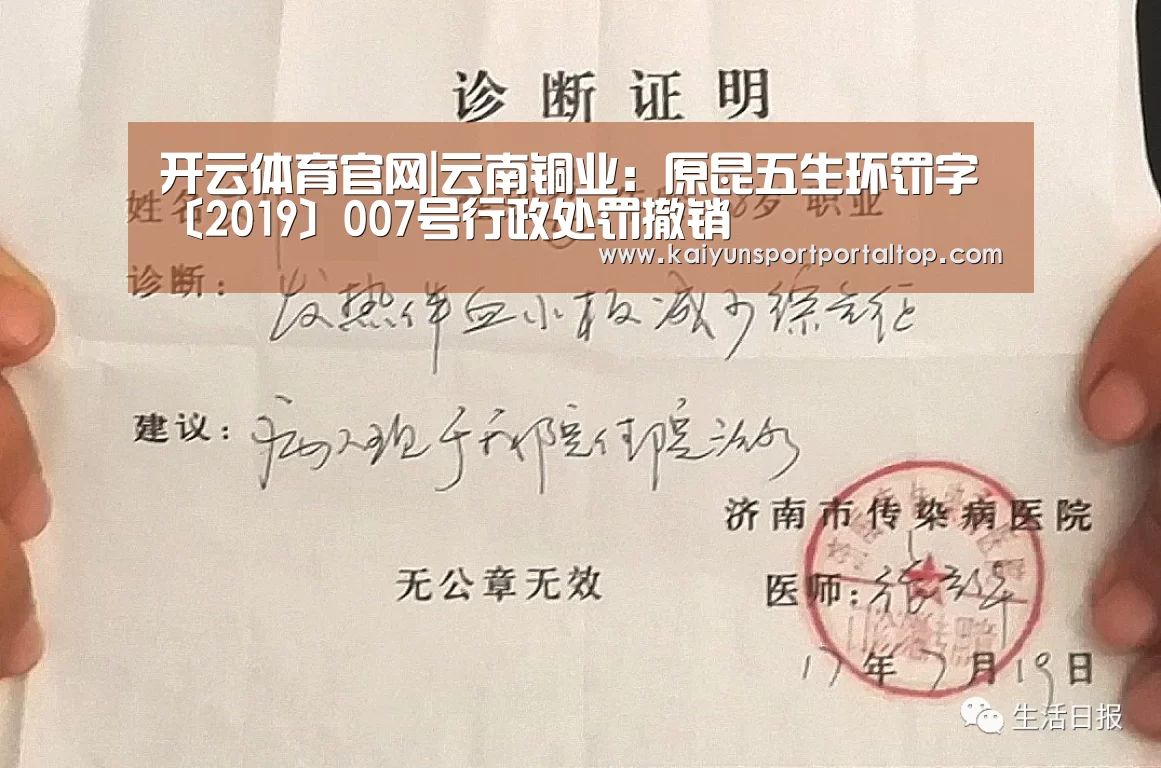 诊断证明
开云体育官网|云南铜业：原昆五生环罚字
〔2019〕007号行政处罚撤销
www.kaiyunsportportaltop.com
姓名 岁 职业
诊断：发热伴血小板减少综合征
建议：病人现于我院住院治疗
济南市传染病医院
无公章无效
医师：
17年7月19日
生活日报